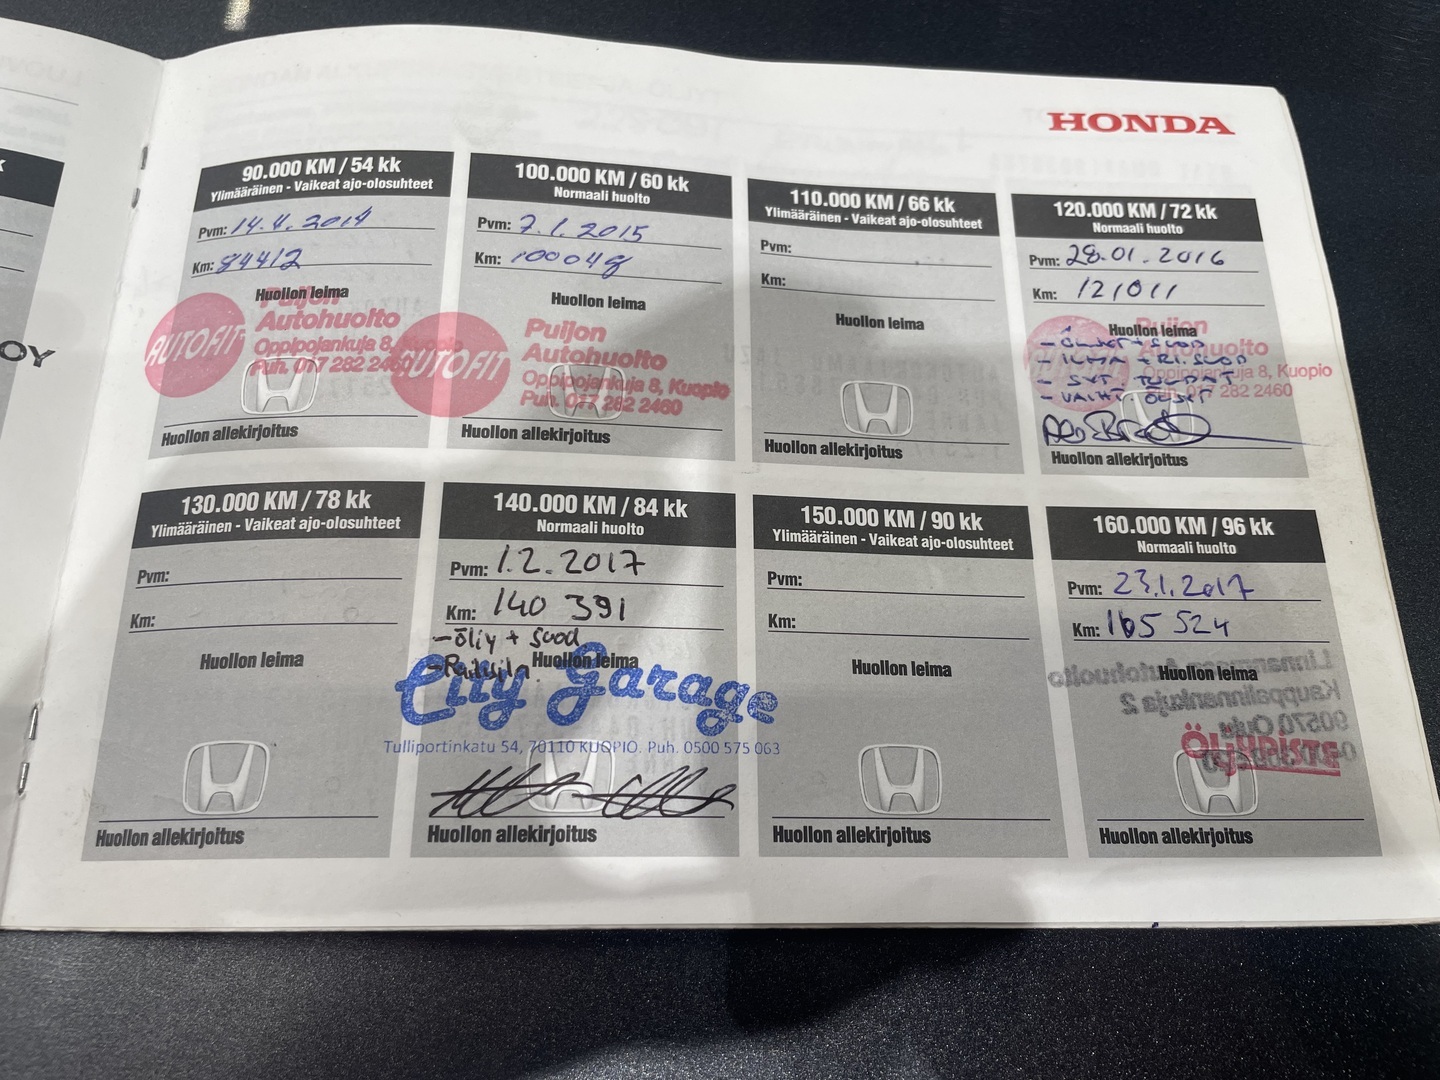 HONDA
90.000 KM / 54 kk
Ylimääräinen - Vaikeat ajo-olosuhteet
Pvm: 14.4.2014
Km: 84412
Huollon leima
AUTOFIT
Puijon
Autohuolto
Oppipojankuja 8, Kuopio
Puh. 017 282 2460
Huollon allekirjoitus
100.000 KM / 60 kk
Normaali huolto
Pvm: 7.1.2015
Km: 100048
Huollon leima
AUTOFIT
Puijon
Autohuolto
Oppipojankuja 8, Kuopio
Puh. 017 282 2460
Huollon allekirjoitus
110.000 KM / 66 kk
Ylimääräinen - Vaikeat ajo-olosuhteet
Pvm:
Km:
Huollon leima
Huollon allekirjoitus
120.000 KM / 72 kk
Normaali huolto
Pvm: 28.01.2016
Km: 121011
Huollon leima
Puijon
Autohuolto
Oppipojankuja 8, Kuopio
Puh. 017 282 2460
Huollon allekirjoitus
OY
130.000 KM / 78 kk
Ylimääräinen - Vaikeat ajo-olosuhteet
Pvm:
Km:
Huollon leima
Huollon allekirjoitus
140.000 KM / 84 kk
Normaali huolto
Pvm: 1.2.2017
Km: 140 391
- öljy + suod
Huollon leima
City Garage
Tulliportinkatu 54, 70110 KUOPIO. Puh. 0500 575 063
Huollon allekirjoitus
150.000 KM / 90 kk
Ylimääräinen - Vaikeat ajo-olosuhteet
Pvm:
Km:
Huollon leima
Huollon allekirjoitus
160.000 KM / 96 kk
Normaali huolto
Pvm: 23.1.2017
Km: 165 524
Huollon leima
Linnanmaan Autohuolto
Kauppalinnankuja 2
90570 Oulu
Huollon allekirjoitus